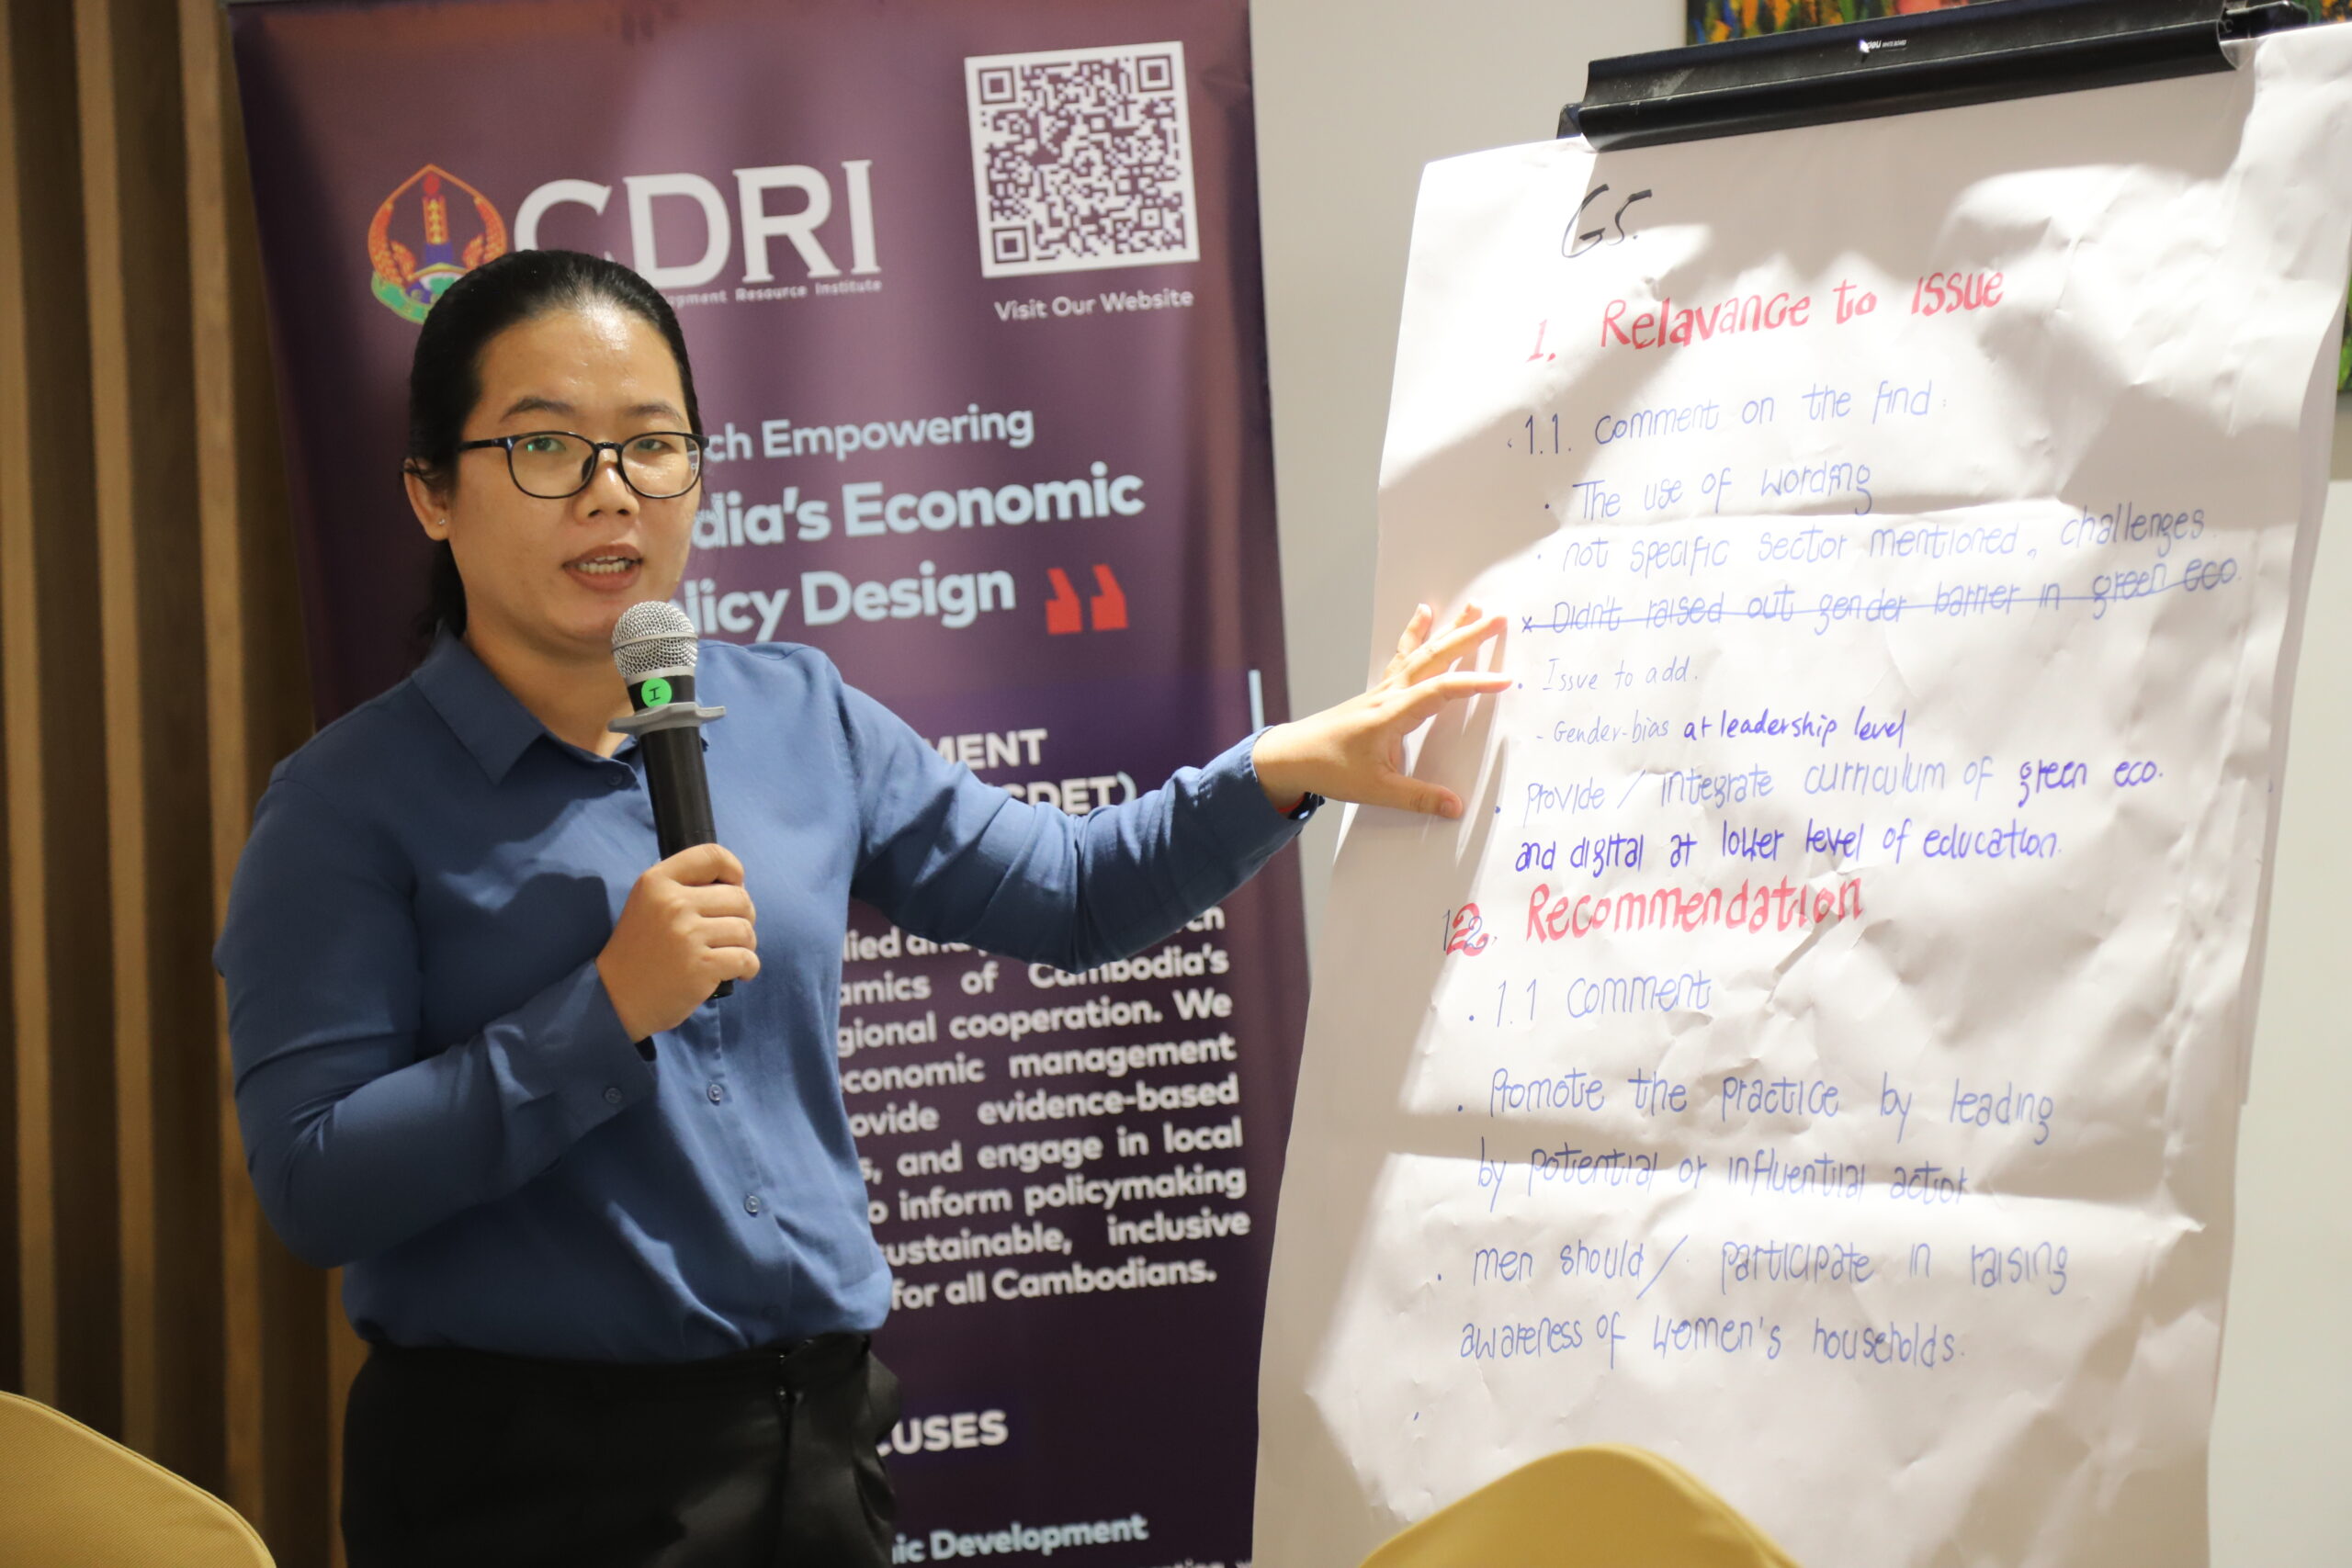 CDRI
opment Resource Institute
Visit Our Website
ch Empowering
dia's Economic
licy Design
MENT
CDET)
lied and
amics of Cambodia's
gional cooperation. We
economic management
ovide evidence-based
s, and engage in local
o inform policymaking
ustainable, inclusive
for all Cambodians.
CUSES
ic Development
I
G5.
1. Relavance to issue
1.1. comment on the find.
• The use of wording
• not specific sector mentioned, challenges
x Didn't raised out gender barrier in green eco.
• Issue to add.
- Gender-bias at leadership level
• Provide / integrate curriculum of green eco.
and digital at lower level of education.
2. Recommendation
• 1.1 comment
• Promote the practice by leading
by potential or influential actor
• men should / participate in raising
awareness of women's households.